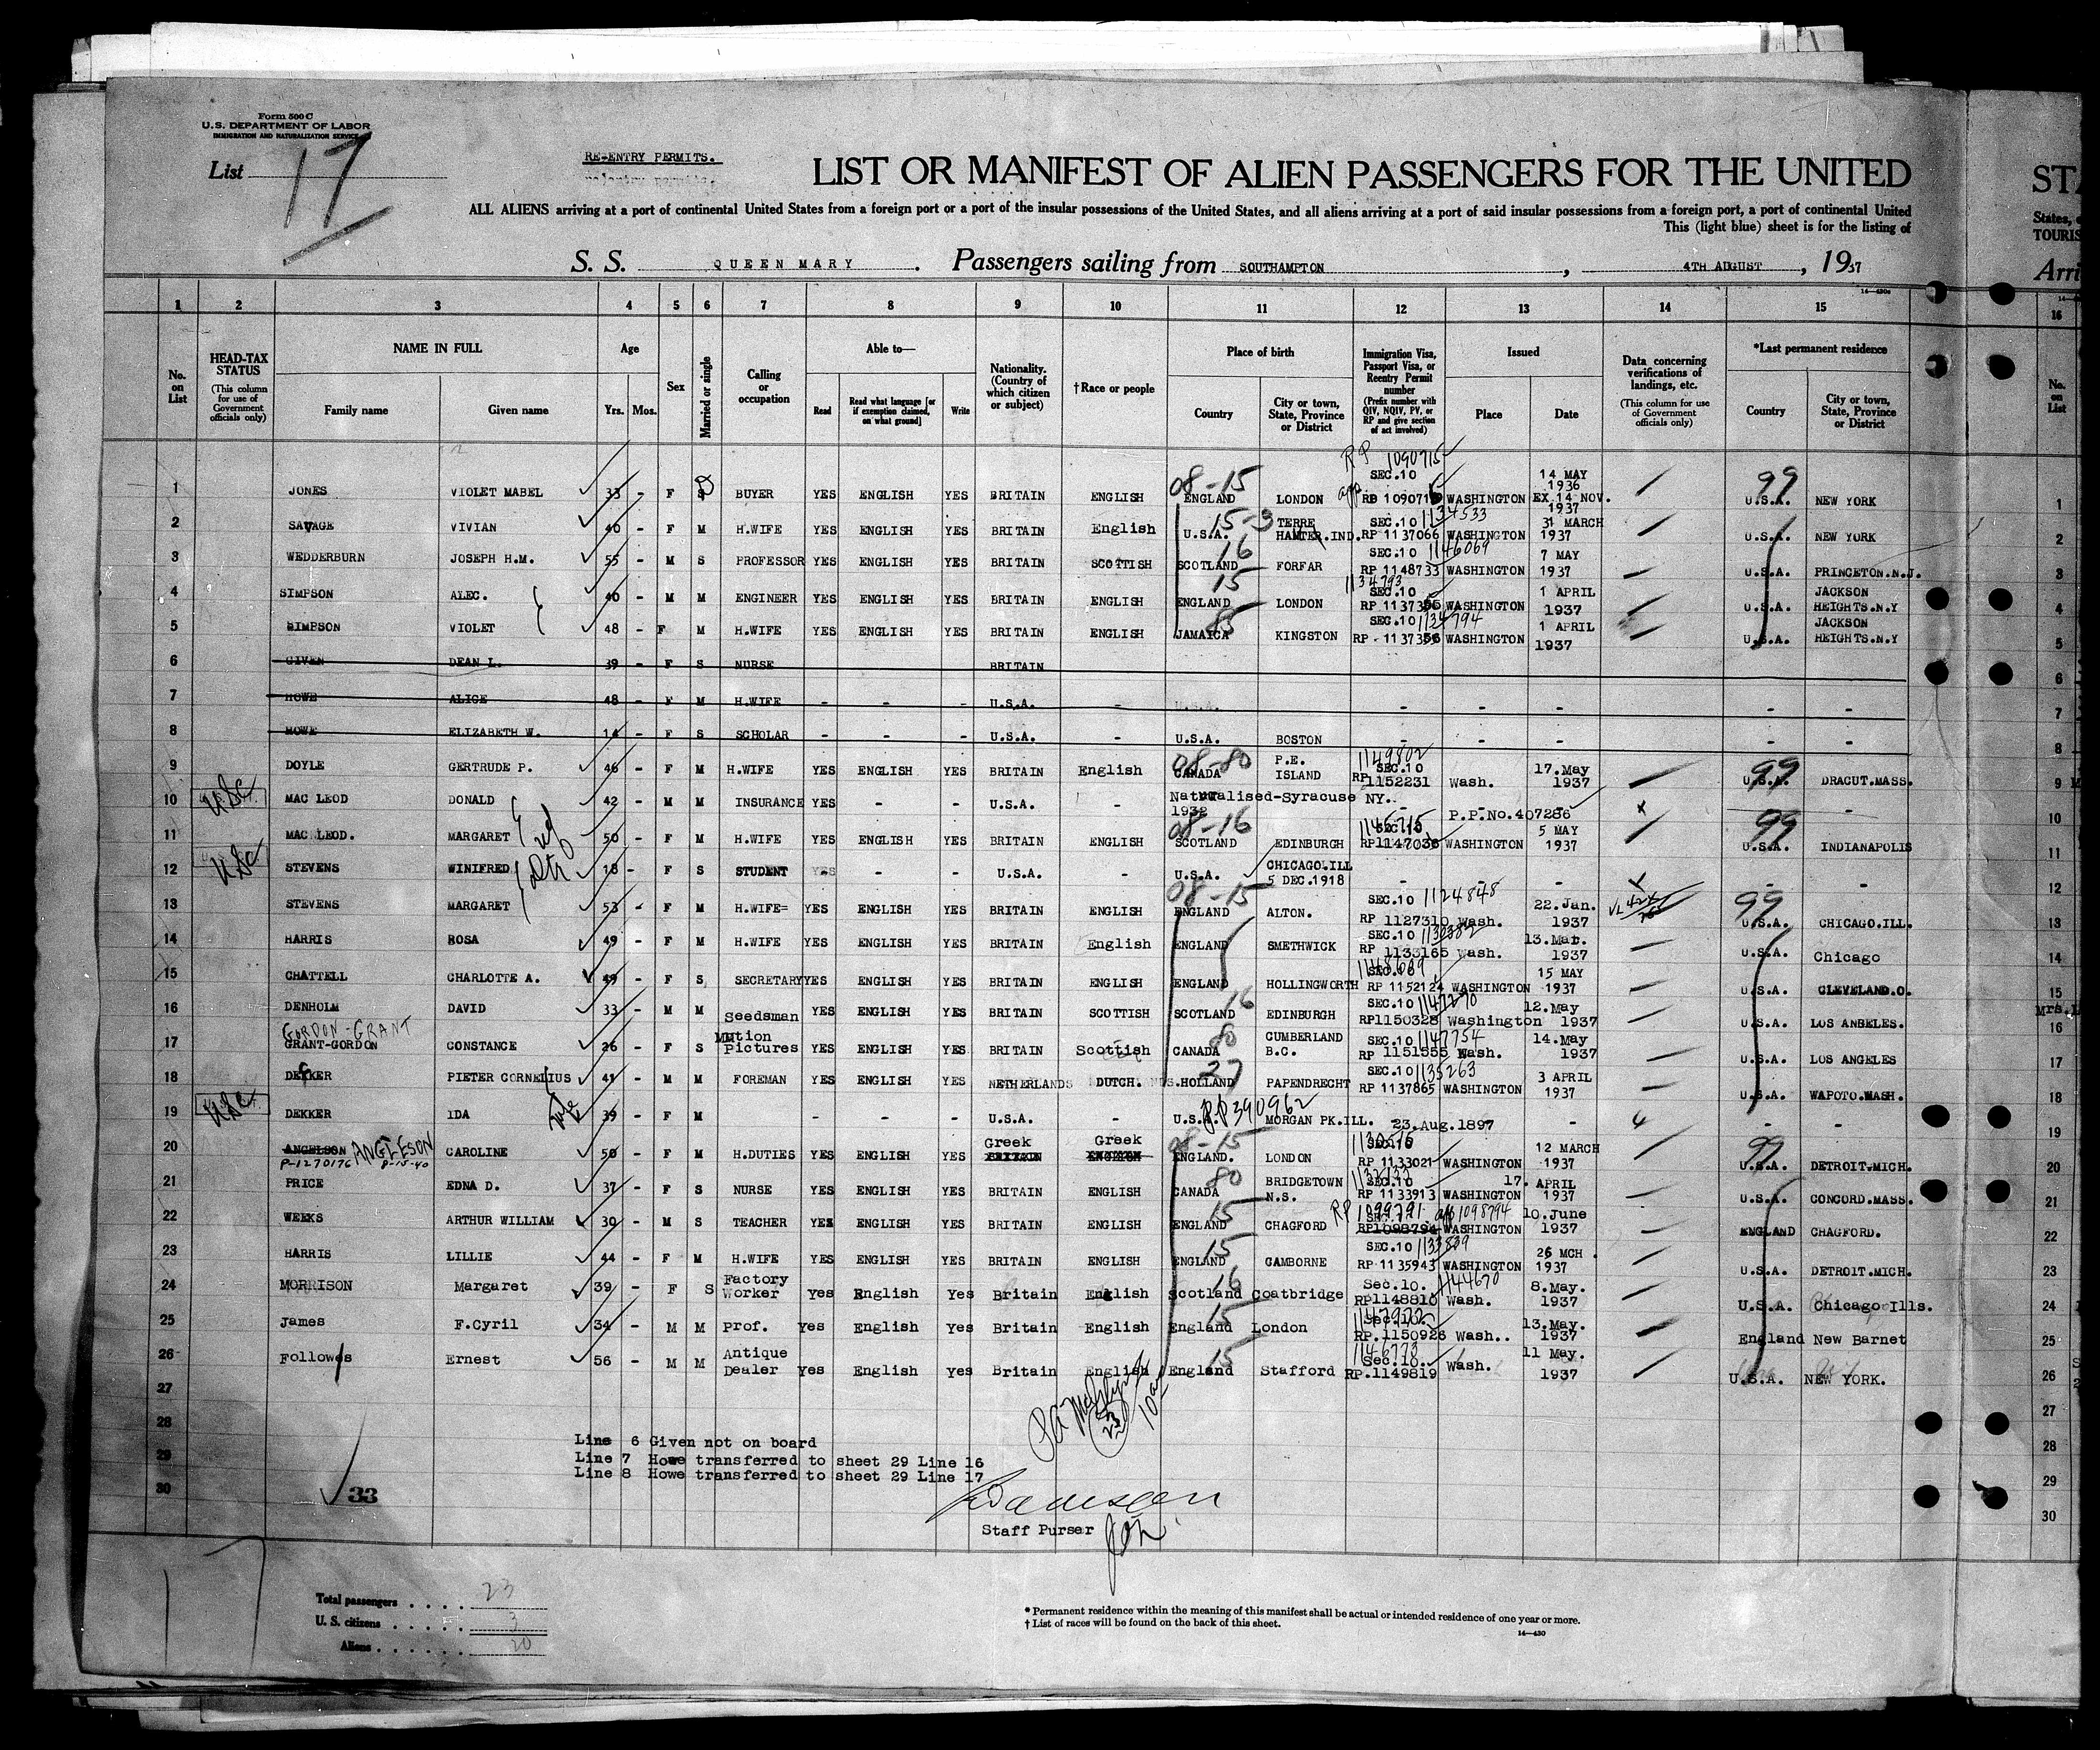 Form 500 C
U.S. DEPARTMENT OF LABOR
IMMIGRATION AND NATURALIZATION SERVICE
List 17
RE-ENTRY PERMITS.
LIST OR MANIFEST OF ALIEN PASSENGERS FOR THE UNITED
ST
ALL ALIENS arriving at a port of continental United States from a foreign port or a port of the insular possessions of the United States, and all aliens arriving at a port of said insular possessions from a foreign port, a port of continental United
States,
This (light blue) sheet is for the listing of
TOURIS
S. S. QUEEN MARY. Passengers sailing from SOUTHAMPTON, 4TH AUGUST, 1937
Arri
1 2 3 4 5 6 7 8 9 10 11 12 13 14 15 16
No. on List
HEAD-TAX STATUS (This column for use of Government officials only)
NAME IN FULL Family name Given name
Age Yrs. Mos.
Sex
Married or single
Calling or occupation
Able to— Read Read what language [or if exemption claimed, on what ground] Write
Nationality. (Country of which citizen or subject)
†Race or people
Place of birth Country City or town, State, Province or District
Immigration Visa, Passport Visa, or Reentry Permit number (Prefix number with QIV, NQIV, PV, or RP and give section of act involved)
Issued Place Date
Data concerning verifications of landings, etc. (This column for use of Government officials only)
*Last permanent residence Country City or town, State, Province or District
No. on List
1 JONES VIOLET MABEL 33 - F S BUYER YES ENGLISH YES BRITAIN ENGLISH 08-15 ENGLAND LONDON RP 1090715 SEC.10 WASHINGTON 14 MAY 1936 EX.14 NOV. 1937 99 U.S.A. NEW YORK 1
2 SAVAGE VIVIAN 40 - F M H.WIFE YES ENGLISH YES BRITAIN English 15-3 U.S.A. TERRE HAUTER.IND. SEC.10 1134533 RP 1137066 WASHINGTON 31 MARCH 1937 U.S.A. NEW YORK 2
3 WEDDERBURN JOSEPH H.M. 55 - M S PROFESSOR YES ENGLISH YES BRITAIN SCOTTISH 16 SCOTLAND FORFAR SEC.10 1146069 RP 1148733 WASHINGTON 7 MAY 1937 U.S.A. PRINCETON.N.J. 3
4 SIMPSON ALEC. 40 - M M ENGINEER YES ENGLISH YES BRITAIN ENGLISH 15 ENGLAND LONDON 1134793 SEC.10 RP 1137355 WASHINGTON 1 APRIL 1937 U.S.A. JACKSON HEIGHTS.N.Y 4
5 SIMPSON VIOLET 48 - F M H.WIFE YES ENGLISH YES BRITAIN ENGLISH 85 JAMAICA KINGSTON SEC.10 1134794 RP-1137356 WASHINGTON 1 APRIL 1937 U.S.A. JACKSON HEIGHTS.N.Y 5
6 GIVEN DEAN L. 39 - F S NURSE BRITAIN 6
7 HOWE ALICE 48 - F M H.WIFE - - - U.S.A. - U.S.A. - - - - - 7
8 HOWE ELIZABETH W. 14 - F S SCHOLAR - - - U.S.A. - U.S.A. BOSTON - - - - - 8
9 DOYLE GERTRUDE P. 46 - F M H.WIFE YES ENGLISH YES BRITAIN English 08-80 CANADA P.E. ISLAND 1149802 SEC.10 RP 1152231 Wash. 17.May 1937 99 U.S.A. DRACUT.MASS. 9
10 USC MAC LEOD DONALD 42 - M M INSURANCE YES - - U.S.A. - Naturalised-Syracuse NY. 1932 P.P.No.407286 x - 10
11 MAC LEOD. MARGARET wf 50 - F M H.WIFE YES ENGLISH YES BRITAIN ENGLISH 08-16 SCOTLAND EDINBURGH 1145715 SEC.10 RP1147036 WASHINGTON 5 MAY 1937 99 U.S.A. INDIANAPOLIS 11
12 USC STEVENS WINIFRED Dtr 18 - F S STUDENT YES - - U.S.A. - U.S.A. CHICAGO.ILL 5 DEC.1918 - - - - - 12
13 STEVENS MARGARET 53 - F M H.WIFE= YES ENGLISH YES BRITAIN ENGLISH 08-15 ENGLAND ALTON. SEC.10 1124848 RP 1127310 Wash. 22.Jan. 1937 99 U.S.A. CHICAGO.ILL. 13
14 HARRIS ROSA 49 - F M H.WIFE YES ENGLISH YES BRITAIN English ENGLAND SMETHWICK SEC.10 1130382 RP 1133165 Wash. 13.Mar. 1937 U.S.A. Chicago 14
15 CHATTELL CHARLOTTE A. 49 - F S SECRETARY YES ENGLISH YES BRITAIN ENGLISH ENGLAND HOLLINGWORTH SEC.10 RP 1152124 WASHINGTON 15 MAY 1937 U.S.A. CLEVELAND.O. 15
16 DENHOLM DAVID 33 - M M Seedsman YES ENGLISH YES BRITAIN SCOTTISH 16 SCOTLAND EDINBURGH SEC.10 1147270 RP1150328 Washington 12.May 1937 U.S.A. LOS ANBELES. Mrs. 16
17 GORDON-GRANT GRANT-GORDON CONSTANCE 26 - F S Motion Pictures YES ENGLISH YES BRITAIN Scottish 80 CANADA CUMBERLAND B.C. SEC.10 1147754 RP 1151555 Wash. 14.May 1937 U.S.A. LOS ANGELES 17
18 DEKKER PIETER CORNELIUS 41 - M M FOREMAN YES ENGLISH YES NETHERLANDS DUTCH. 27 HOLLAND PAPENDRECHT SEC.10 1135263 RP 1137865 WASHINGTON 3 APRIL 1937 U.S.A. WAPOTO.WASH. 18
19 USC DEKKER IDA wife 39 - F M - - - U.S.A. - U.S.A. PP390962 MORGAN PK.ILL. 23.Aug.1897 - - - 19
20 ANGELSON ANGLESON P-1270176 P-15-40 CAROLINE 50 - F M H.DUTIES YES ENGLISH YES Greek BRITAIN Greek ENGLISH 08-15 ENGLAND. LONDON SEC.10 RP 1133021 WASHINGTON 12 MARCH 1937 99 U.S.A. DETROIT.MICH. 20
21 PRICE EDNA D. 37 - F S NURSE YES ENGLISH YES BRITAIN ENGLISH 80 CANADA BRIDGETOWN N.S. SEC.10 RP 1133913 WASHINGTON 17. APRIL 1937 U.S.A. CONCORD.MASS. 21
22 WEEKS ARTHUR WILLIAM 30 - M S TEACHER YES ENGLISH YES BRITAIN ENGLISH 15 ENGLAND CHAGFORD RP 1099791 app 1098794 RP1098794 WASHINGTON 10.June 1937 ENGLAND CHAGFORD. 22
23 HARRIS LILLIE 44 - F M H.WIFE YES ENGLISH YES BRITAIN ENGLISH 15 ENGLAND CAMBORNE SEC.10 1133839 RP 1135943 WASHINGTON 26 MCH. 1937 U.S.A. DETROIT.MICH. 23
24 MORRISON Margaret 39 - F S Factory Worker Yes English Yes Britain English 16 Scotland Coatbridge Sec.10. 1144670 RP1148810 Wash. 8.May. 1937 U.S.A. Chicago Ills. 24
25 James F.Cyril 34 - M M Prof. Yes English Yes Britain English 15 England London RP.1150926 Wash.. 13.May. 1937 England New Barnet 25
26 Followes Ernest 56 - M M Antique Dealer Yes English Yes Britain English 15 England Stafford 1146773 Sec.10. RP.1149819 Wash. 11 May. 1937 U.S.A. NEW YORK. 26
27 27
28 28
Line 6 Given not on board
29 Line 7 Howe transferred to sheet 29 Line 16 29
Line 8 Howe transferred to sheet 29 Line 17
30 33 30
Staff Purser
Total passengers . . . . 23
U. S. citizens . . . . . 3
Aliens . . . . . . 20
* Permanent residence within the meaning of this manifest shall be actual or intended residence of one year or more.
† List of races will be found on the back of this sheet.
14—430